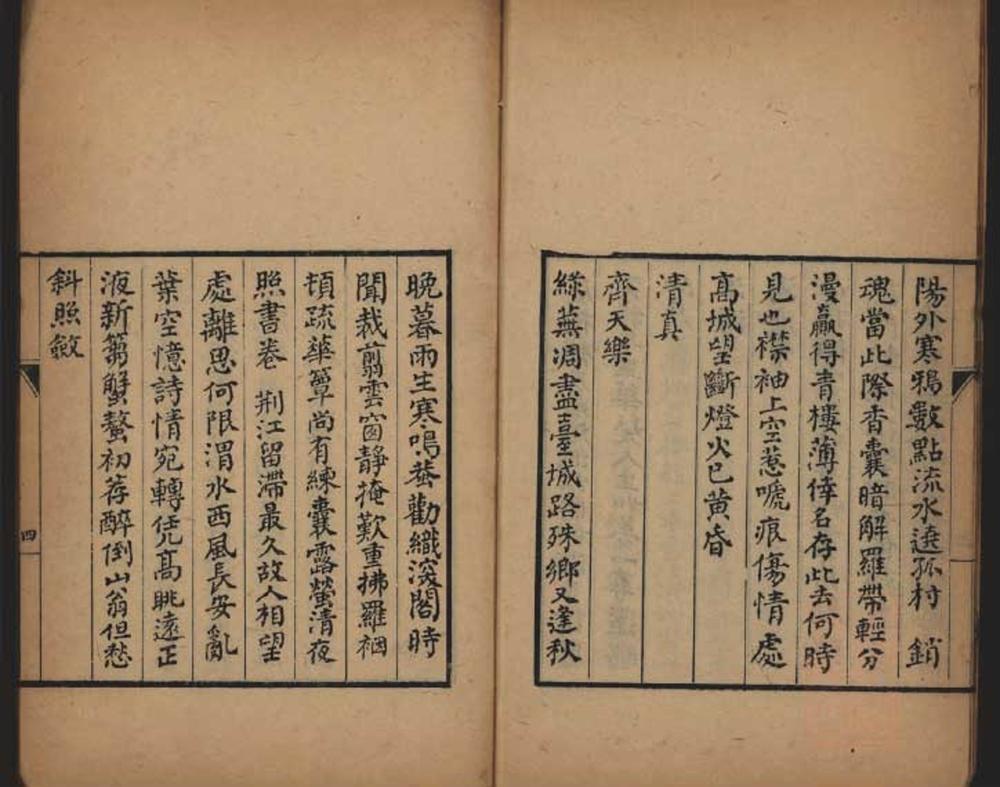 陽外寒鴉數點流水遶孤村　銷
魂當此際香囊暗解羅帶輕分
漫贏得青樓薄倖名存此去何時
見也襟袖上空惹嗁痕傷情處
高城望斷燈火已黃昏
清真
齊天樂
綠蕪凋盡臺城路殊鄉又逢秋
晚暮雨生寒鳴蛩勸織深閣時
聞裁翦雲窗靜掩歎重拂羅裀
頓疏華簟尚有練囊露螢清夜
照書卷　荆江留滯最久故人相望
處離思何限渭水西風長安亂
葉空憶詩情宛轉凭高眺遠正
液新篘蟹螯初荐醉倒山翁但愁
斜照斂
四